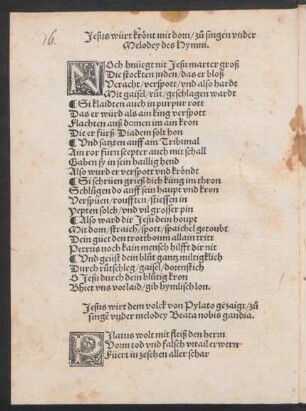 16.
Jesus würt krönt mit dorn/ zů singen vnder
Melodey des Hymni.
NOch bnüegt nit Jesu marter groß
Die stockten juden/ das er bloß
Veracht/ verspott/ vnd also hardt
Mit gaisel/ růt/ geschlagen wardt
¶ Si klaidten auch in purpur rott
Das er würd als ain king verspott
Flachten auß dornen im ain kron
Die er fürß Diadem solt hon
¶ Vnd satzten auff ain Tribunal
Ain ror fürn scepter auch mit schall
Gaben sy in sein hailig hend
Also wurd er verspott vnd kröndt
¶ Si schrüen grieß dich küng im thron
Schlůgen do auff sein haupt vnd kron
Verspüen/ roufften/ stiessen in
Yepten solch/ vnd vil grosser pin
¶ Also ward dir Jesu dein houpt
Mit dorn/ straich/ spott/ spaichel getoubt
Dein guet den trottboum allain tritt
Petrus noch kain mensch hilfft dir nit
¶ Vnd geüst dein blůt gantz miltigklich
Durch růtschleg/ gaisel/ dornstich
O Jesu durch dein blůtig kron
Bhiet vns vorlaid/ gib hymlisch lon.
Jesus wirt dem volck von Pylato gezaigt/ zů
singē vnder melodey Beata nobis gaudia.
PIlatus wolt mit fleiß den herrn
Vonn tod vnd falsch vrtail erwern
Füert in zesehen aller schar